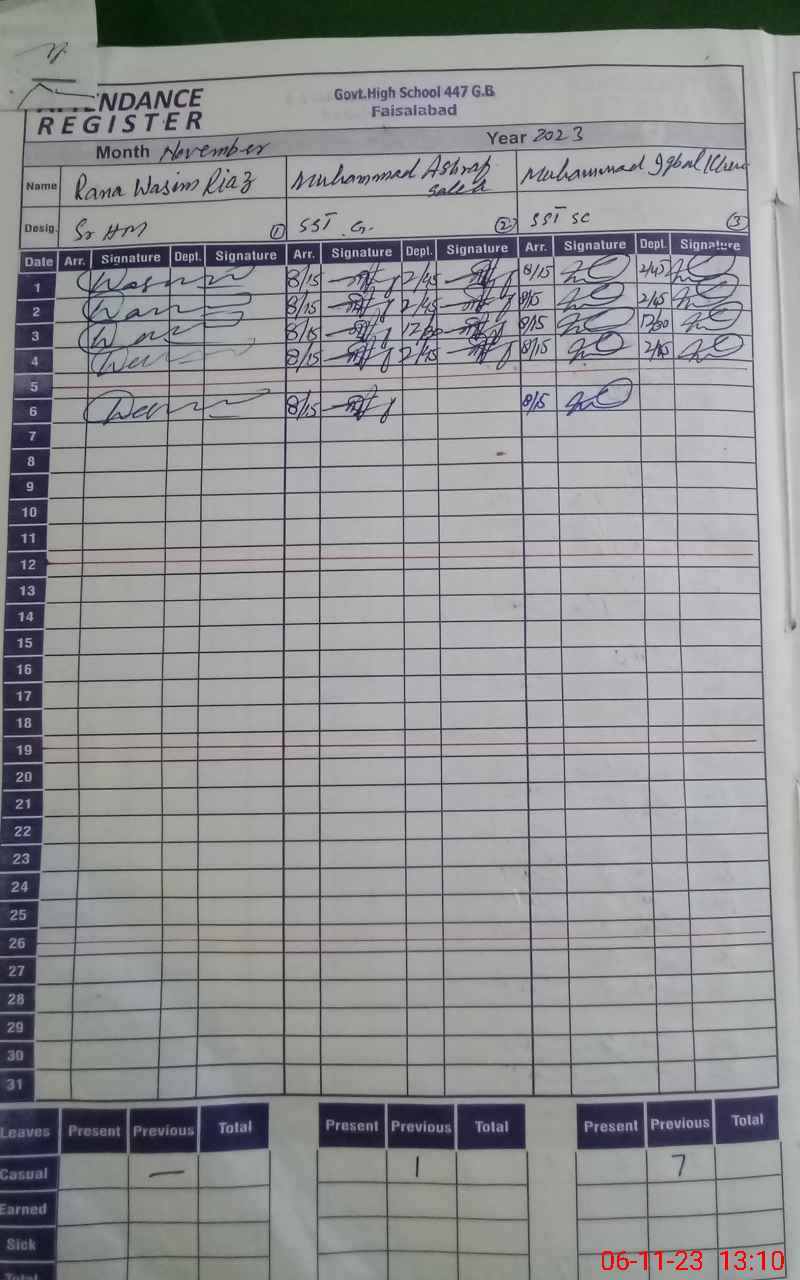 ENDANCE
REGISTER
Govt.High School 447 G.B
Faisalabad
Month November
Year 2023
Name Rana Wasim Riaz Muhammad Ashraf Muhammad Iqbal
Desig. Sr HM ① SST G. ② SST SC ③
Date Arr. Signature Dept. Signature Arr. Signature Dept. Signature Arr. Signature Dept. Signature
1 8/15 2/45 8/15 2/45
2 8/15 2/45 8/15 2/45
3 8/15 12/30 8/15 12/30
4 8/15 2/45 8/15 2/45
5
6 8/15 8/15
7
8
9
10
11
12
13
14
15
16
17
18
19
20
21
22
23
24
25
26
27
28
29
30
31
Leaves Present Previous Total Present Previous Total Present Previous Total
Casual — 1 7
Earned
Sick
Total
06-11-23 13:10